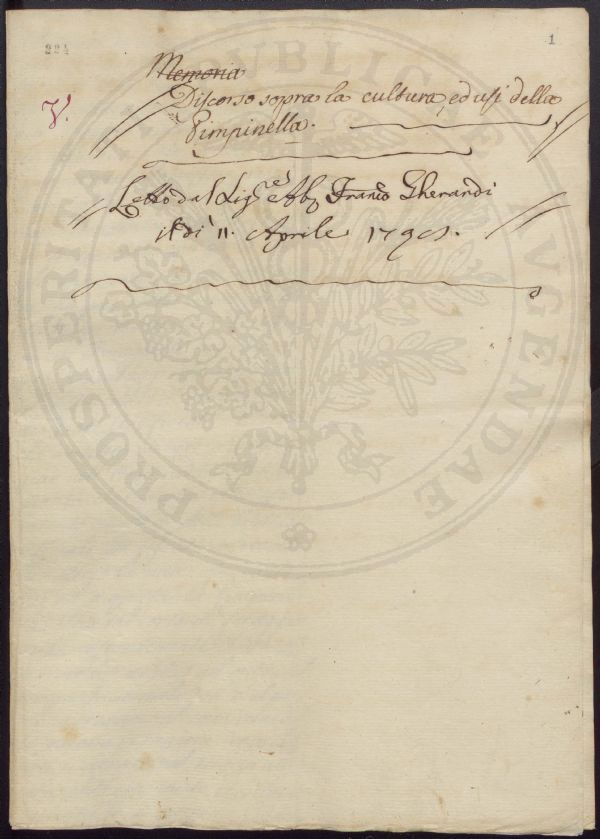 224
1
V.
Memoria
Discorso sopra la cultura, ed usi della
Pimpinella.
Letto dal Sig.re Ab. Fran.co Gherardi
il dì 11. Aprile
PROSPERITATI PUBLICAE AVGENDAE